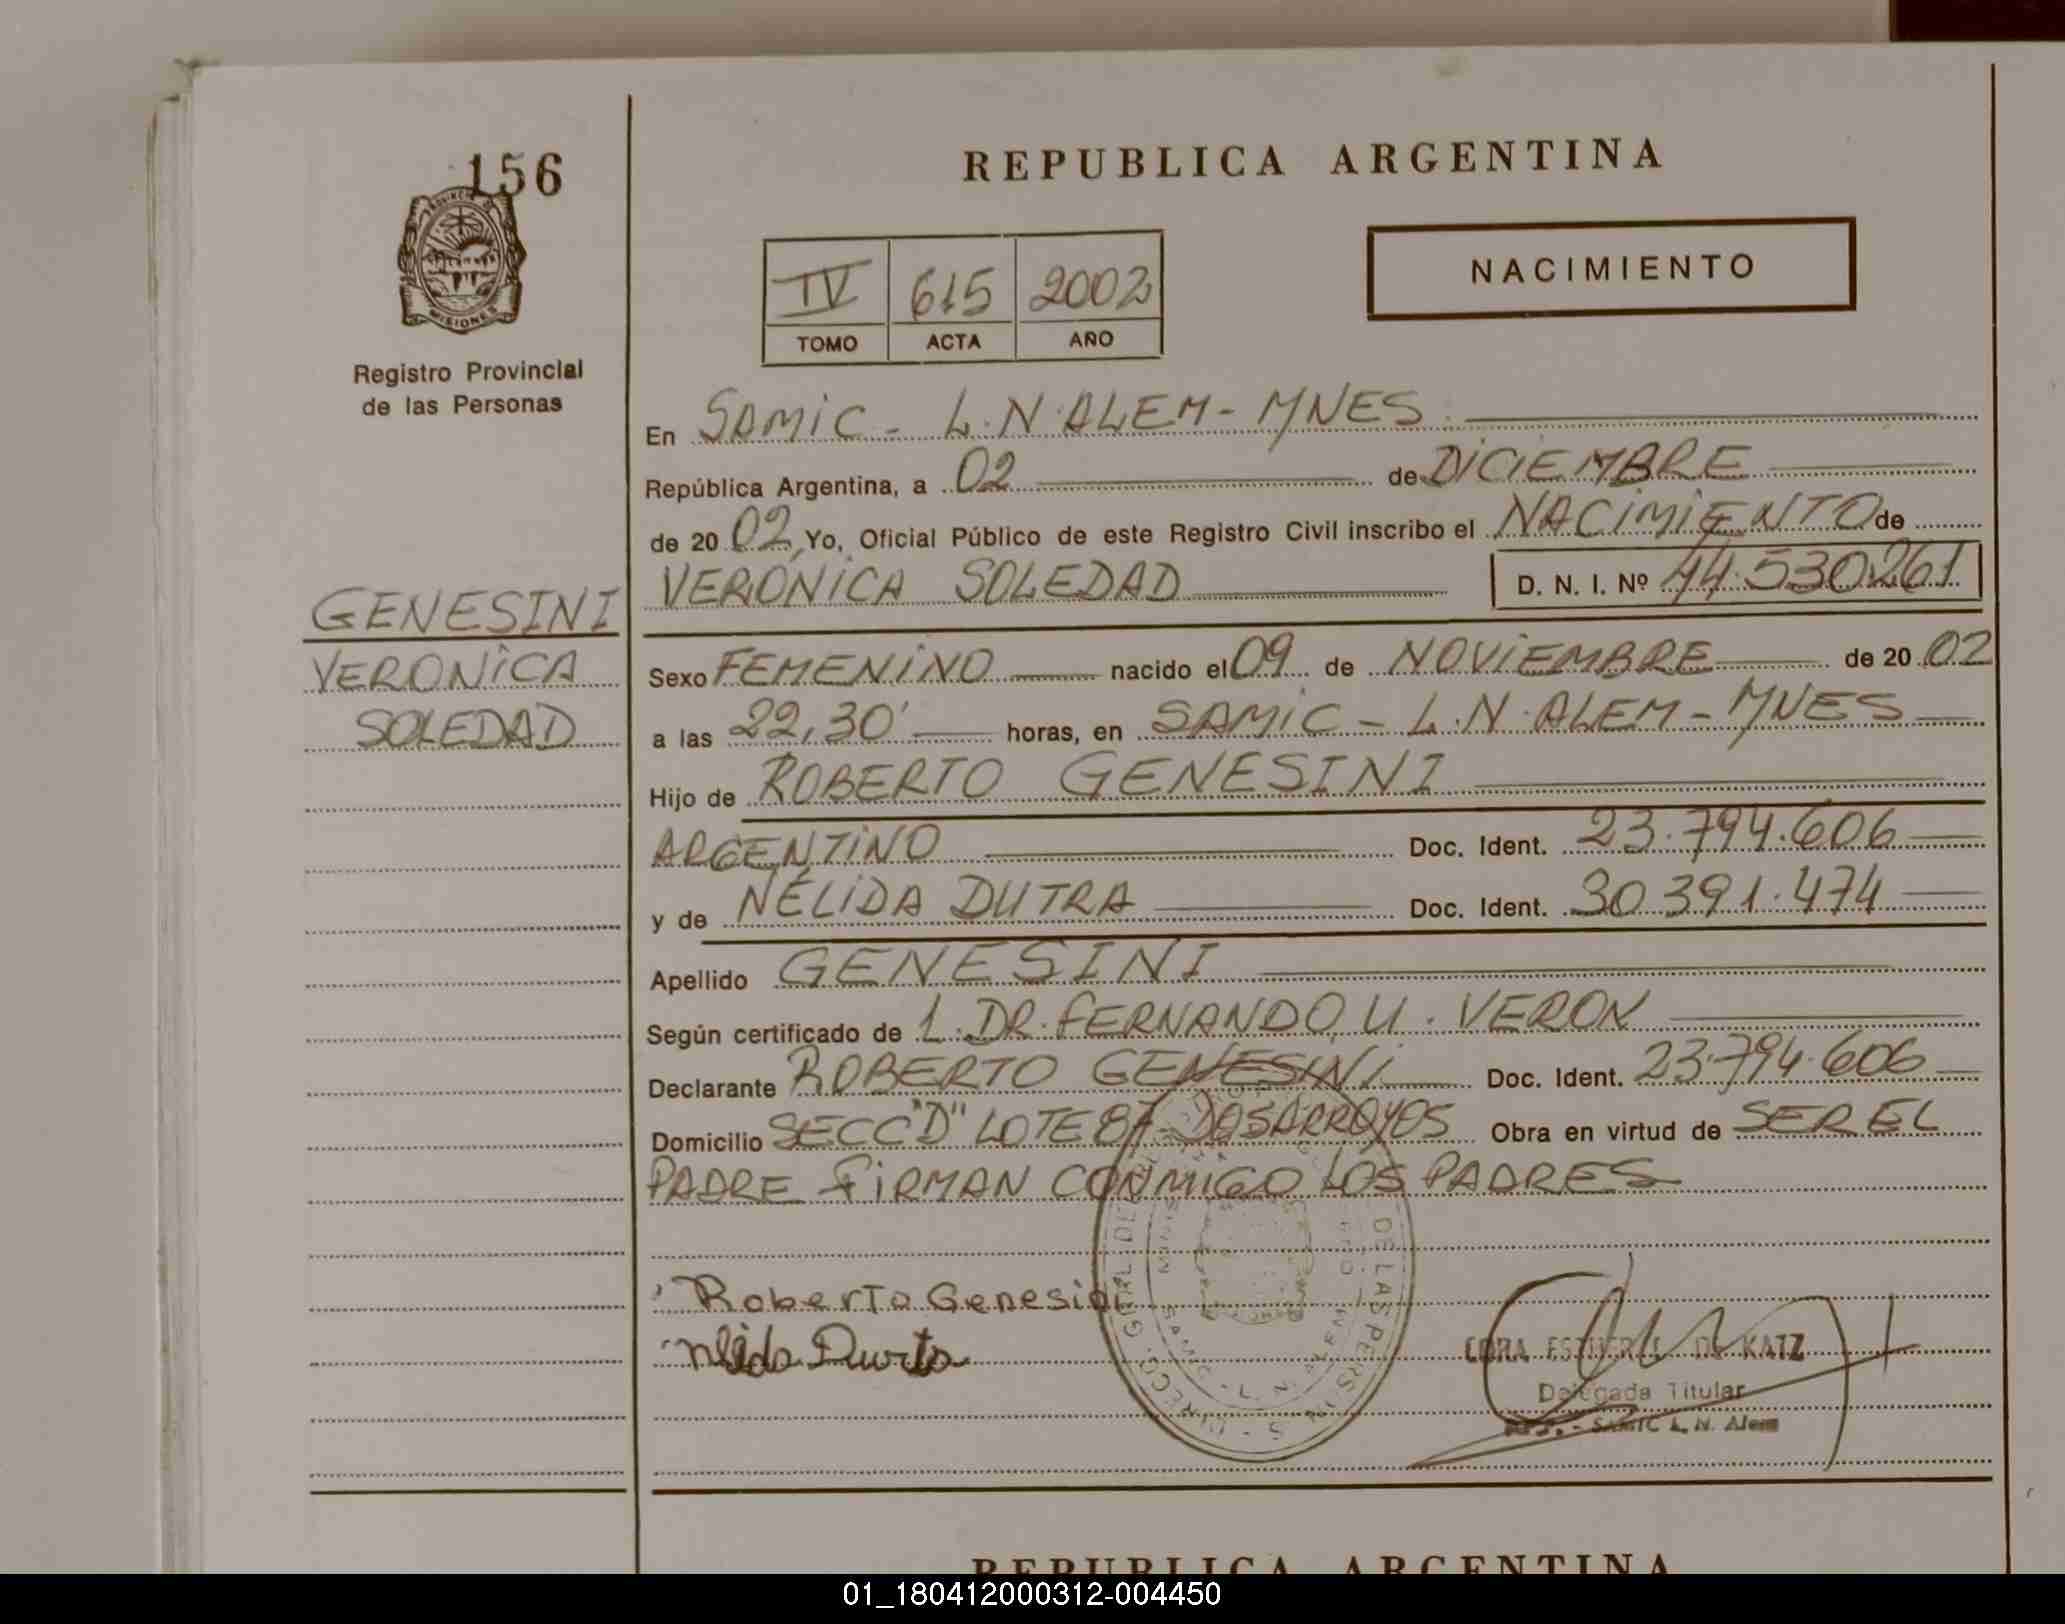 156
PROVINCIA DE
MISIONES
Registro Provincial
de las Personas
REPUBLICA ARGENTINA
IV 615 2002
TOMO ACTA AÑO
NACIMIENTO
En SAMIC - L.N.ALEM - MNES
República Argentina, a 02 de DICIEMBRE
de 20 02, Yo, Oficial Público de este Registro Civil inscribo el NACIMIENTO de
VERÓNICA SOLEDAD D. N. I. Nº 44.530.261
GENESINI
VERONICA
SOLEDAD
Sexo FEMENINO nacido el 09 de NOVIEMBRE de 20 02
a las 22,30' horas, en SAMIC - L.N.ALEM - MNES
Hijo de ROBERTO GENESINI
ARGENTINO Doc. Ident. 23.794.606
y de NÉLIDA DUTRA Doc. Ident. 30.391.474
Apellido GENESINI
Según certificado de 1. DR. FERNANDO U. VERON
Declarante ROBERTO GENESINI Doc. Ident. 23.794.606
Domicilio SECC "D" LOTE 87 DOS ARROYOS Obra en virtud de SER EL
PADRE FIRMAN CONMIGO LOS PADRES
DE LAS PERSONAS
Roberto Genesini
DE KATZ
Delegada Titular
SAMIC L. N. Alem
REPUBLICA ARGENTINA
01_180412000312-004450